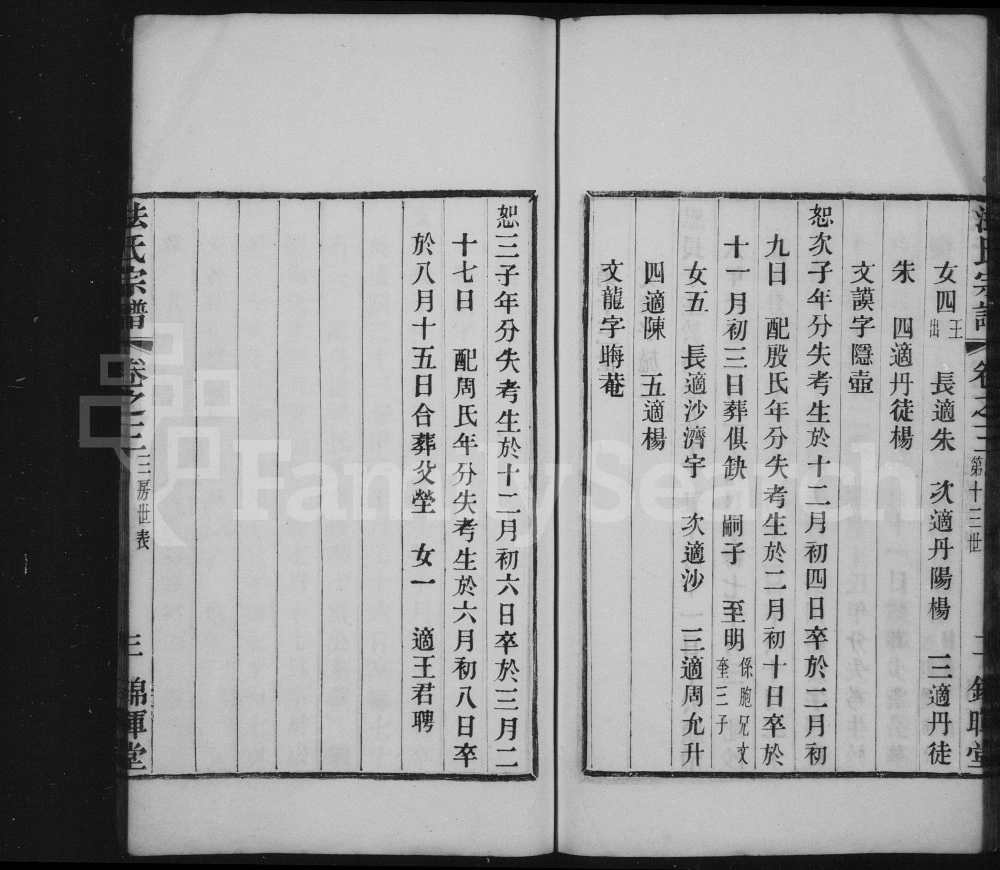 法氏宗譜 卷之三 第十三世 二 錦暉堂
女四 王出 長適朱 次適丹陽楊 三適丹徒
朱 四適丹徒楊
文謨字隱壺
恕次子年分失考生於十二月初四日卒於二月初
九日 配殷氏年分失考生於二月初十日卒於
十一月初三日葬俱缺 嗣子 至明 係胞兄文奎三子
女五 長適沙濟宇 次適沙 三適周允升
四適陳 五適楊
文龍字晦菴
恕三子年分失考生於十二月初六日卒於三月二
十七日 配周氏年分失考生於六月初八日卒
於八月十五日合葬父塋 女一 適王君聘
法氏宗譜 卷之三 三房世表 三 錦暉堂
FamilySearch